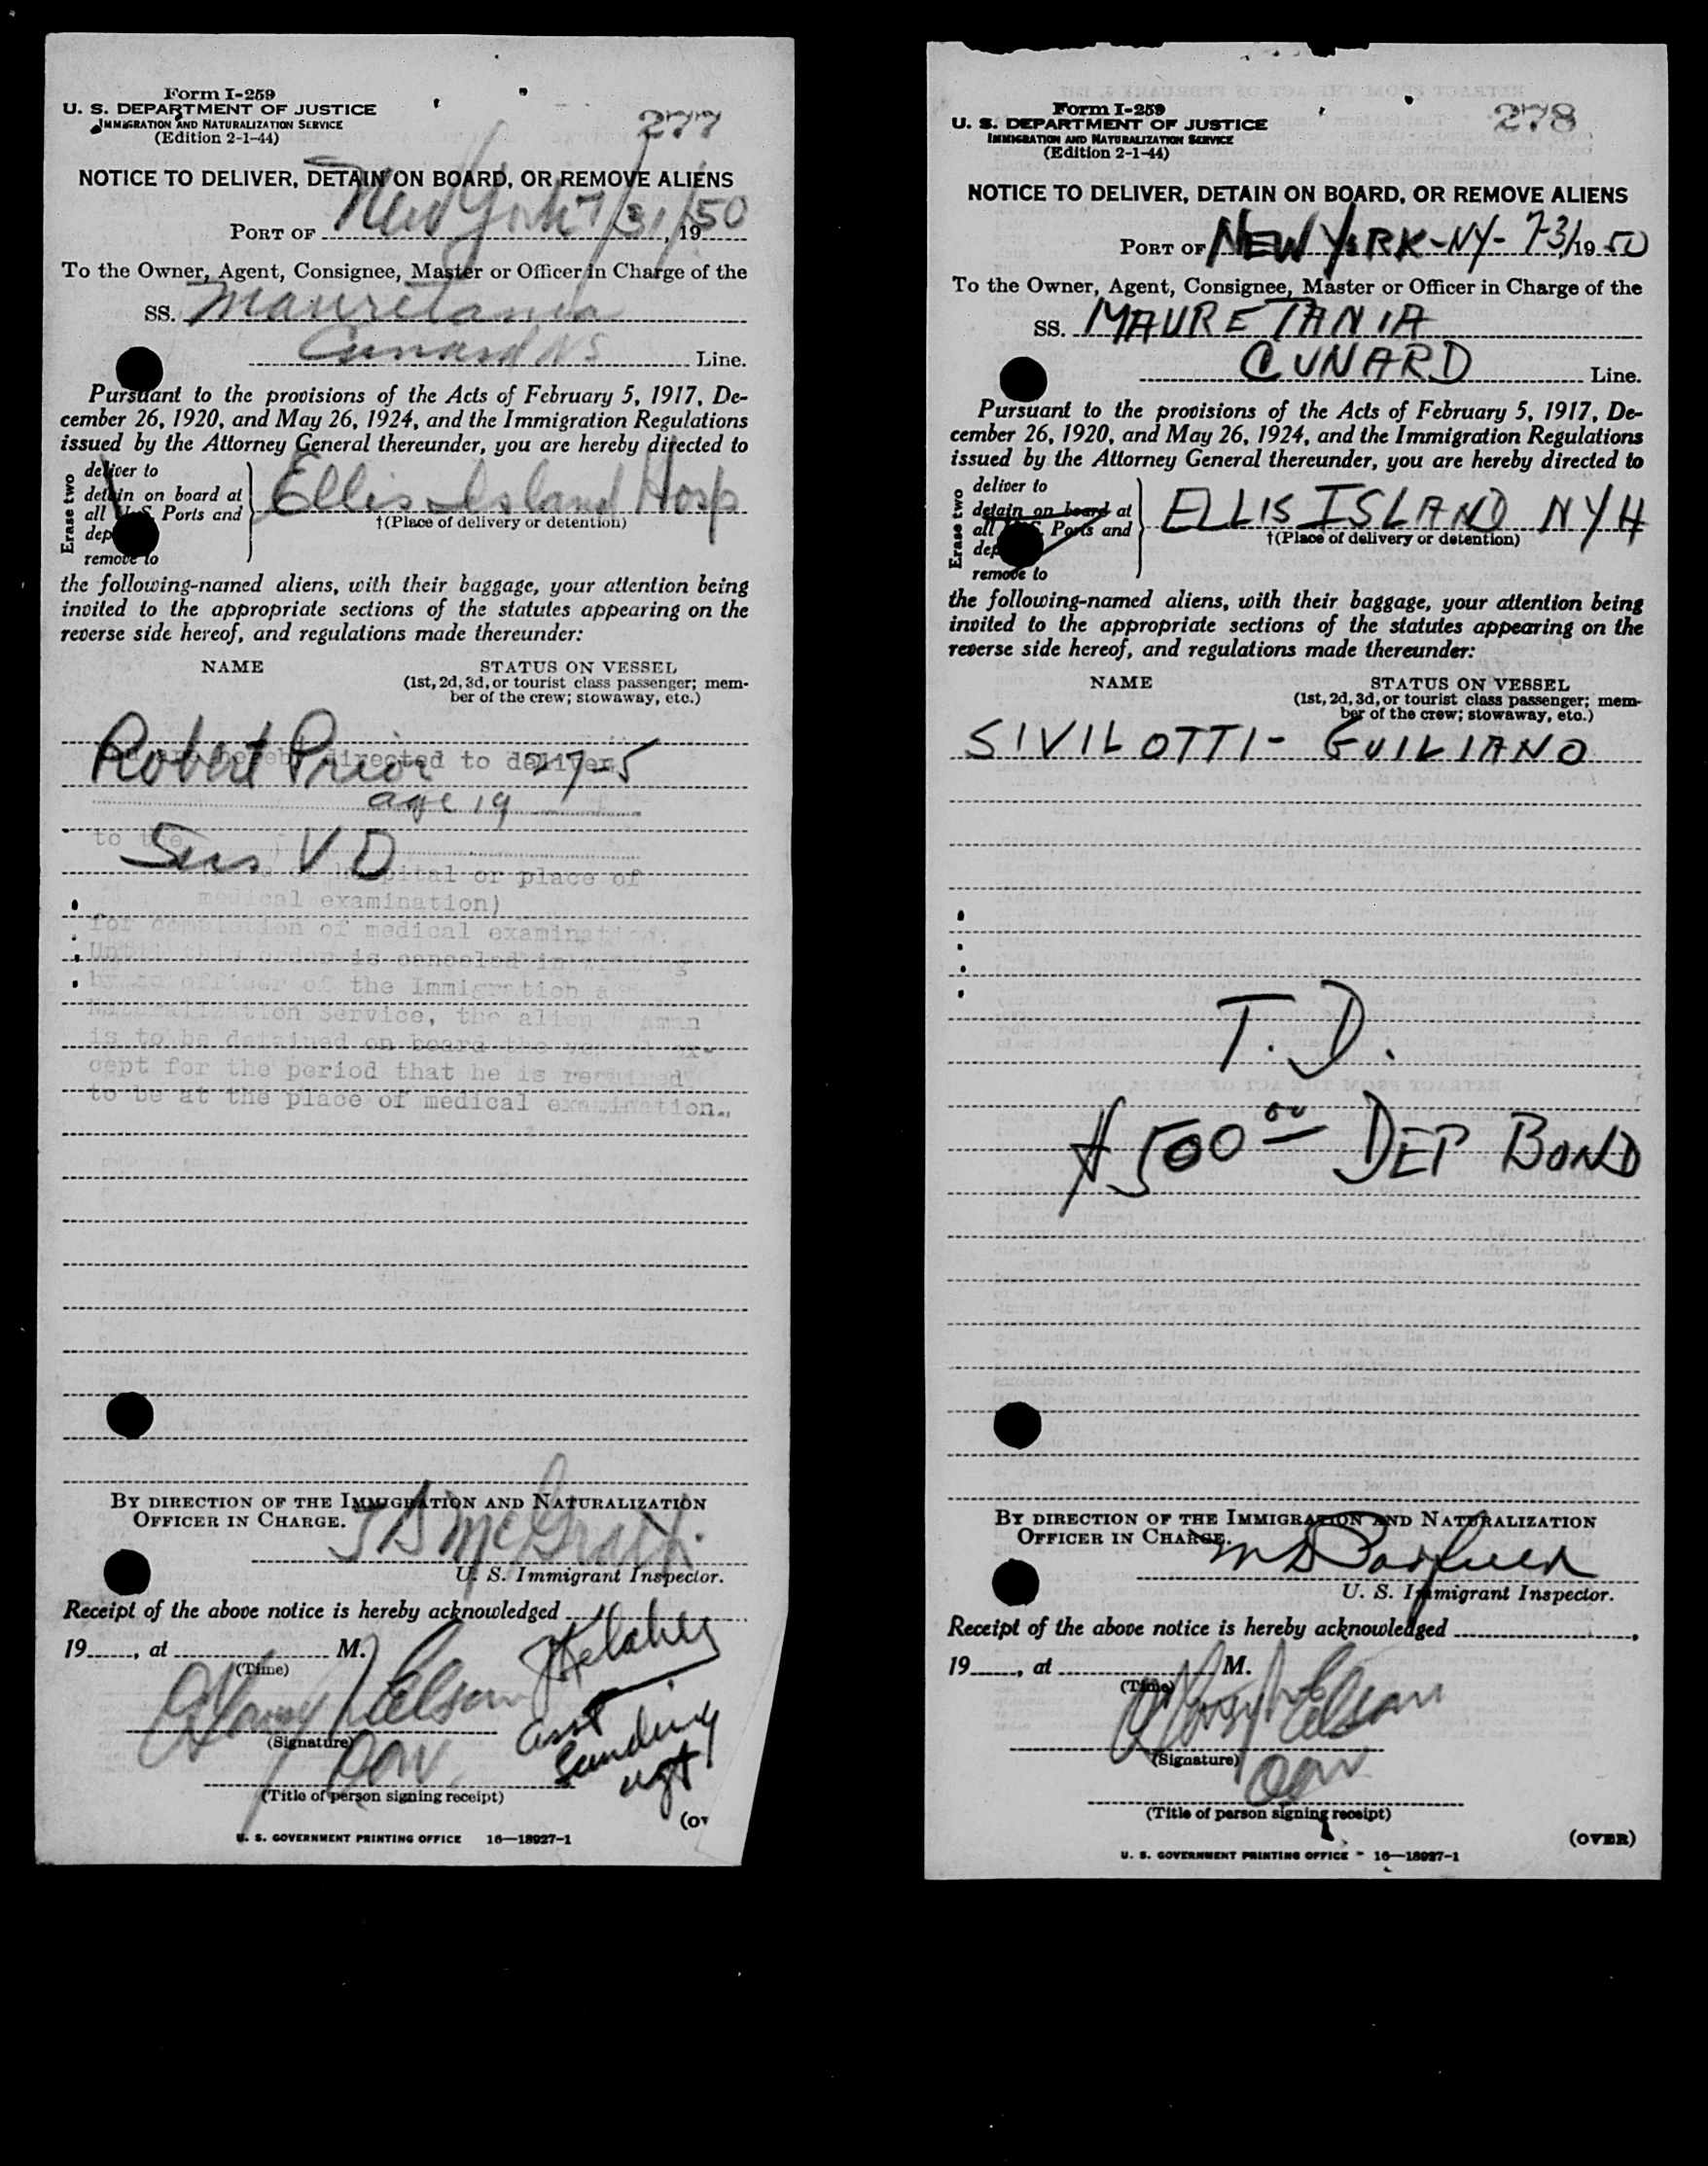 Form I-259
U. S. DEPARTMENT OF JUSTICE
IMMIGRATION AND NATURALIZATION SERVICE
(Edition 2-1-44)
277
NOTICE TO DELIVER, DETAIN ON BOARD, OR REMOVE ALIENS
PORT OF New York 7/31/, 1950
To the Owner, Agent, Consignee, Master or Officer in Charge of the
SS. Mauretania
Cunard WS Line.
Pursuant to the provisions of the Acts of February 5, 1917, De-
cember 26, 1920, and May 26, 1924, and the Immigration Regulations
issued by the Attorney General thereunder, you are hereby directed to
Erase two
deliver to
detain on board at
all U.S. Ports and
dep
remove to
Ellis Island Hosp
†(Place of delivery or detention)
the following-named aliens, with their baggage, your attention being
invited to the appropriate sections of the statutes appearing on the
reverse side hereof, and regulations made thereunder:
NAME
STATUS ON VESSEL
(1st, 2d, 3d, or tourist class passenger; mem-
ber of the crew; stowaway, etc.)
Robert Prior 27-5
directed to deliver
age 19
to the
Sus V D
hospital or place of
medical examination)
for completion of medical examination.
Until this order is canceled in writing
by an officer of the Immigration and
Naturalization Service, the alien seaman
is to be detained on board the vessel ex-
cept for the period that he is required
to be at the place of medical examination.
BY DIRECTION OF THE IMMIGRATION AND NATURALIZATION
OFFICER IN CHARGE.
McGrath
U. S. Immigrant Inspector.
Receipt of the above notice is hereby acknowledged
19, at M.
(Time)
Nelson
(Signature)
asst
Landing
agt
(Title of person signing receipt)
(OV
U. S. GOVERNMENT PRINTING OFFICE 16—18927-1
Form I-259
U. S. DEPARTMENT OF JUSTICE
IMMIGRATION AND NATURALIZATION SERVICE
(Edition 2-1-44)
278
NOTICE TO DELIVER, DETAIN ON BOARD, OR REMOVE ALIENS
PORT OF NEW YORK-NY- 7-31 19 50
To the Owner, Agent, Consignee, Master or Officer in Charge of the
SS. MAURETANIA
CUNARD Line.
Pursuant to the provisions of the Acts of February 5, 1917, De-
cember 26, 1920, and May 26, 1924, and the Immigration Regulations
issued by the Attorney General thereunder, you are hereby directed to
Erase two
deliver to
detain on board at
all Ports and
dep
remove to
ELLIS ISLAND NYH
†(Place of delivery or detention)
the following-named aliens, with their baggage, your attention being
invited to the appropriate sections of the statutes appearing on the
reverse side hereof, and regulations made thereunder:
NAME
STATUS ON VESSEL
(1st, 2d, 3d, or tourist class passenger; mem-
ber of the crew; stowaway, etc.)
SIVILOTTI- GUILIANO
T. D.
$500 00 DEP BOND
BY DIRECTION OF THE IMMIGRATION AND NATURALIZATION
OFFICER IN CHARGE.
U. S. Immigrant Inspector.
Receipt of the above notice is hereby acknowledged
19, at M.
(Time)
Nelson
(Signature)
(Title of person signing receipt)
(OVER)
U. S. GOVERNMENT PRINTING OFFICE 16—18927-1